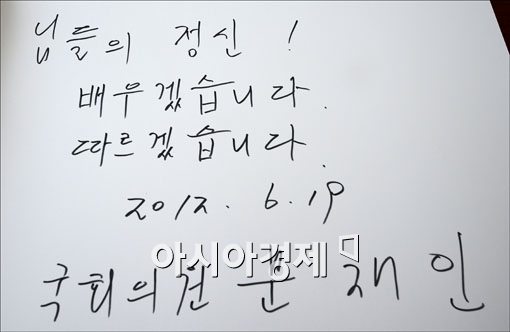 님들의 정신!
배우겠습니다.
따르겠습니다.
2012. 6. 19
아시아경제
국회의원 문 재 인